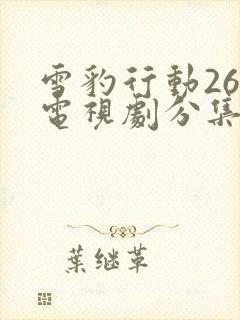 雪豹行動26
電視劇分集
葉继革